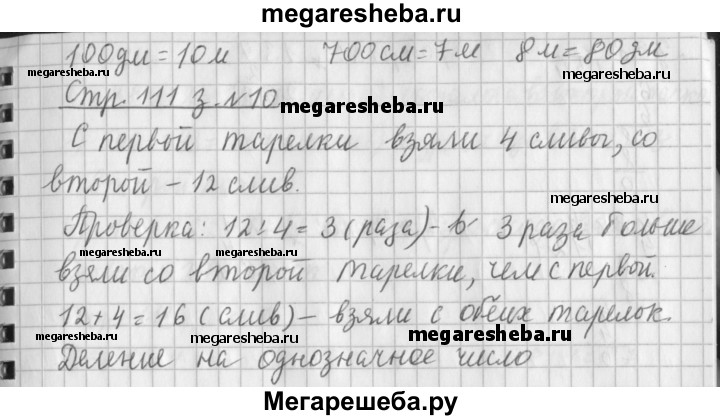 megaresheba.ru
100дм = 10м 700см = 7м 8м = 80дм
megaresheba.ru megaresheba.ru
Стр. 111 з. №10
megaresheba.ru
С первой тарелки взяли 4 сливы, со
второй - 12 слив.
megaresheba.ru
Проверка: 12:4 = 3 (раза) - в 3 раза больше
megaresheba.ru megaresheba.ru
взяли со второй тарелки, чем с первой.
12 + 4 = 16 (слив) - взяли с обеих тарелок.
megaresheba.ru megaresheba.ru
Деление на однозначное число
Мегарешеба.ру